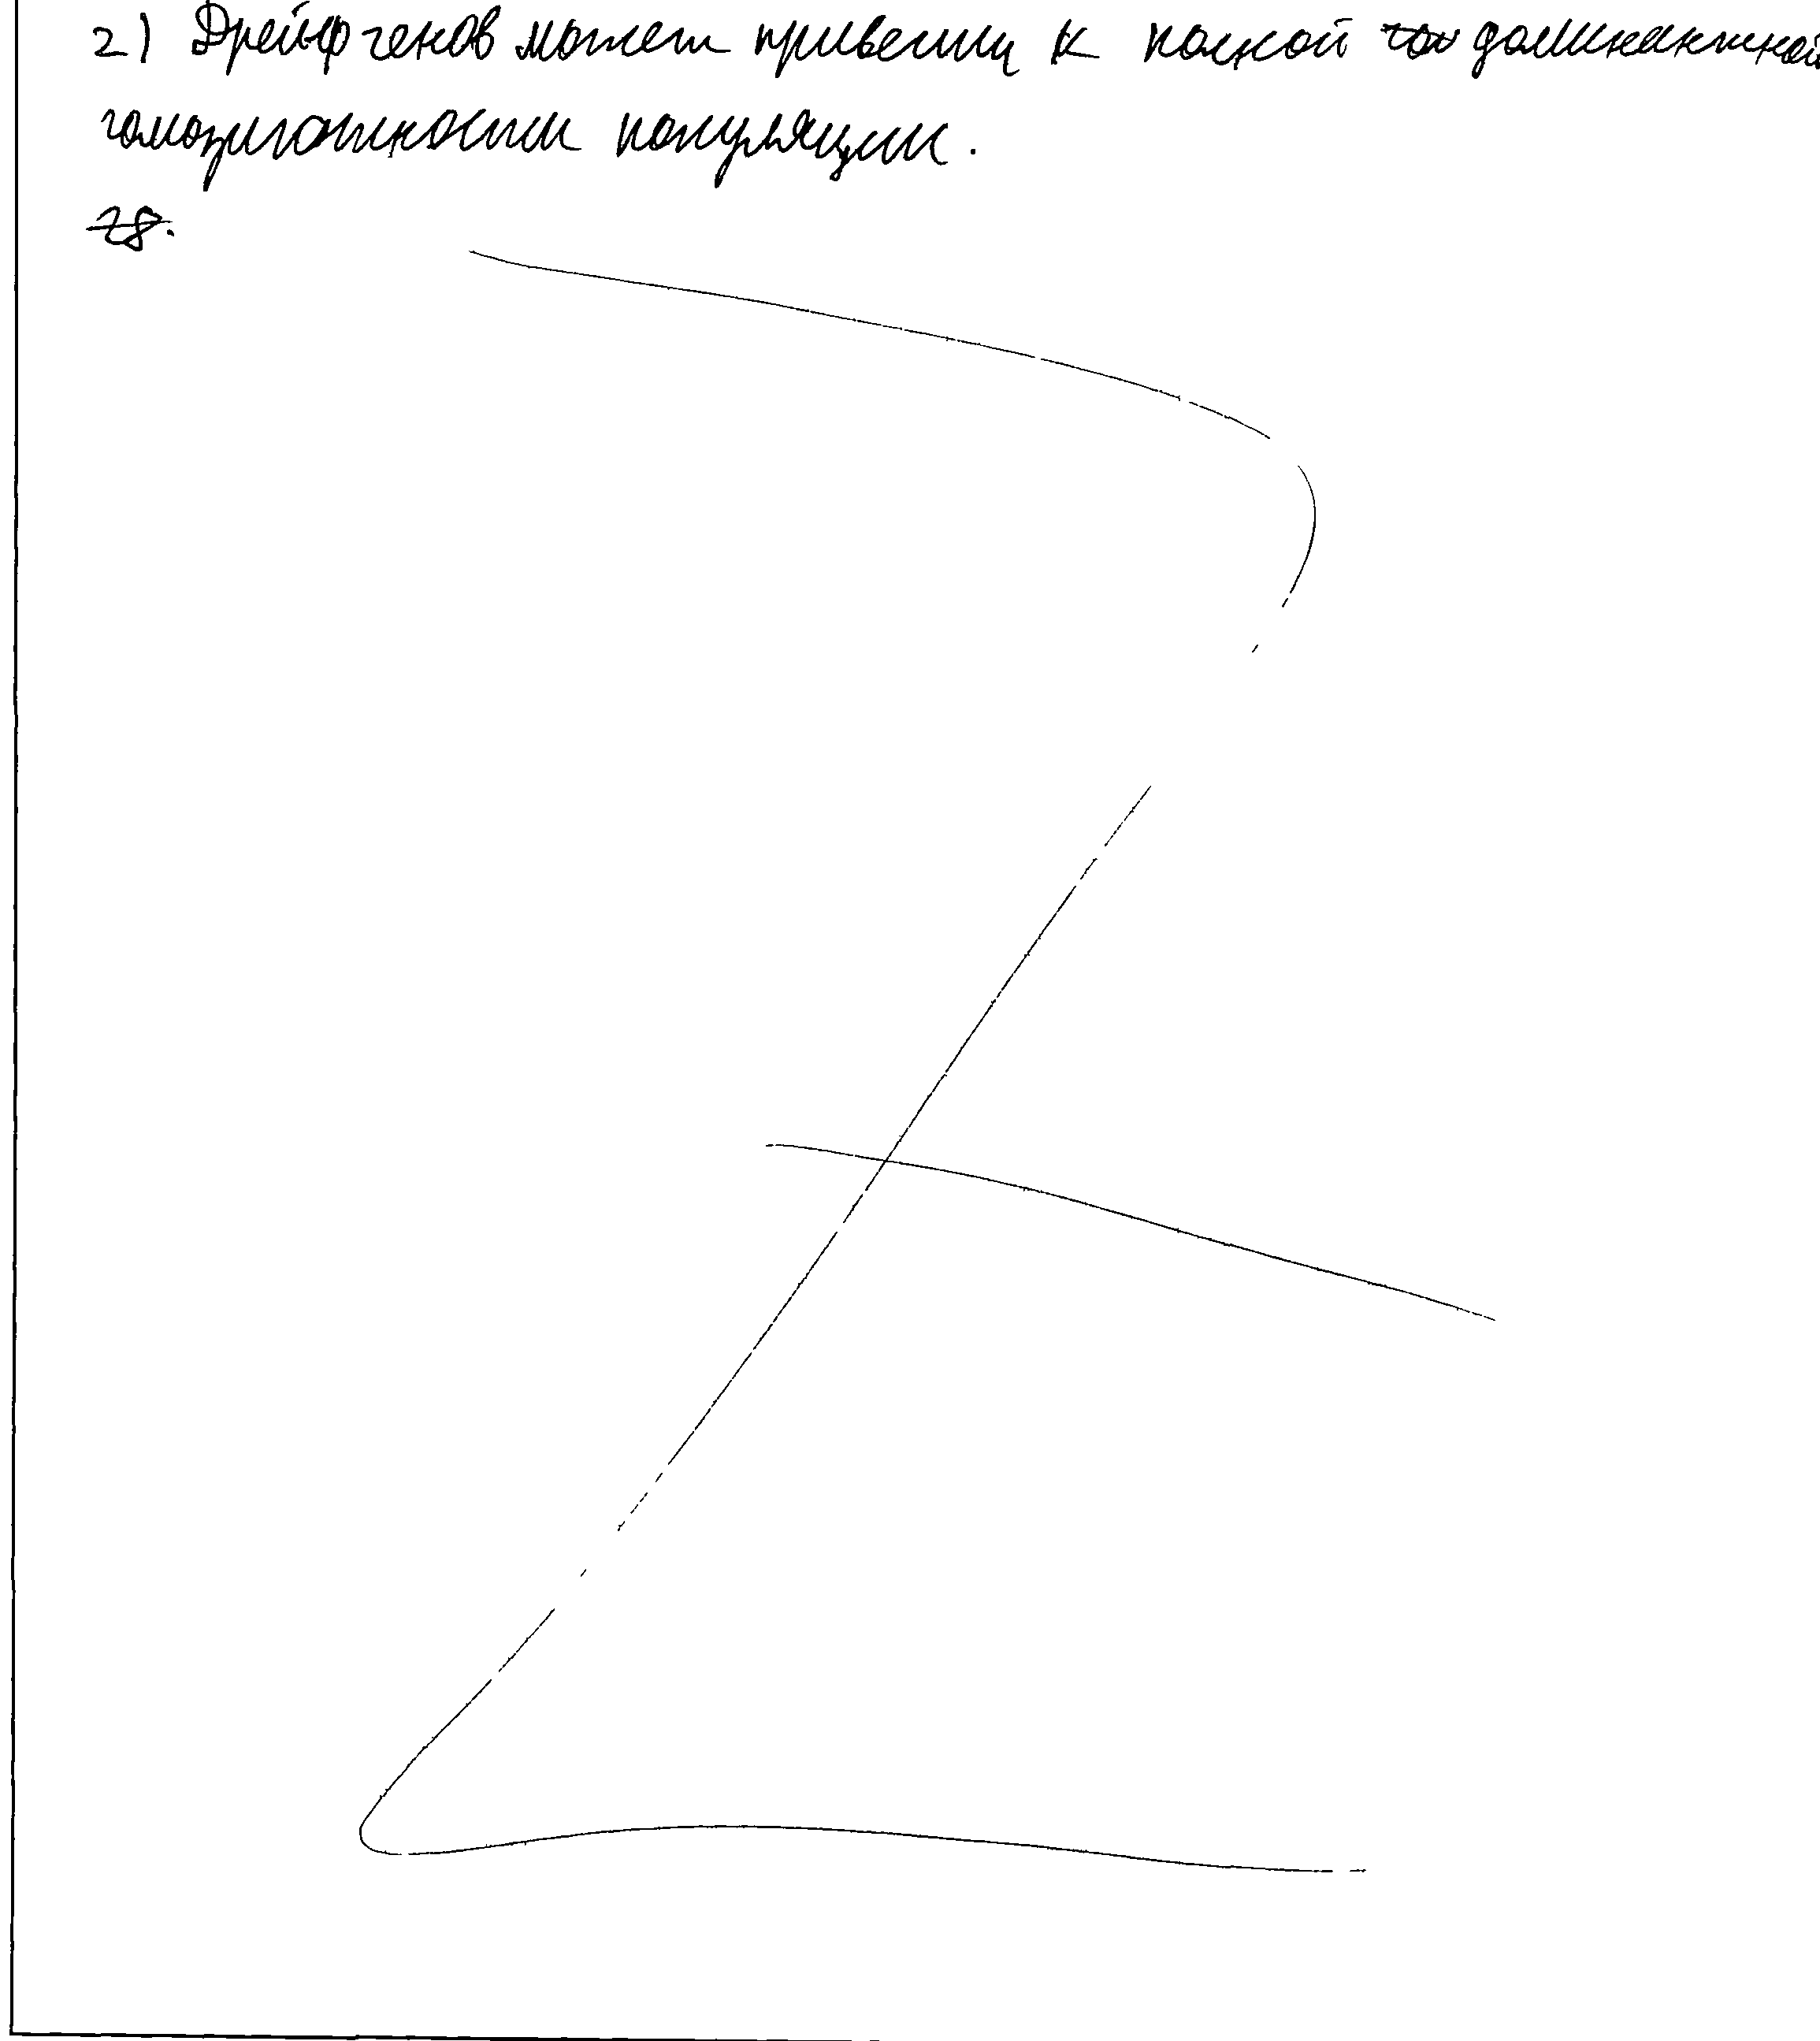 2) Дрейф генов может привести к полной гом доминантной
гомозиготности популяции.
28.